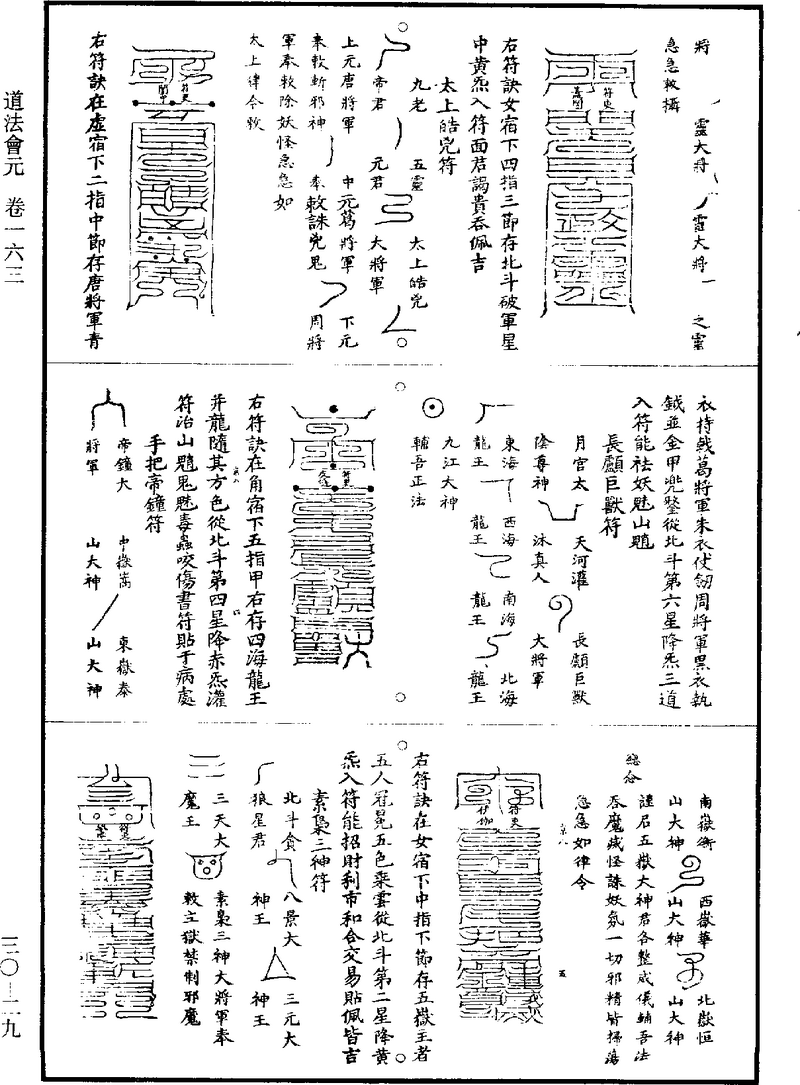 道法會元 卷一六三
三〇—二九
將 靈大將 雷大將 之靈
急急敕攝
符吏
右符訣女宿下四指三節存北斗破軍星
中黃炁入符面君謁貴吞佩吉
太上皓兇符
九老 五靈 太上皓兇
帝君 元君 大將軍
上元唐將軍 中元葛將軍 下元
奉敕斬邪神 奉敕誅兇鬼 周將
軍奉敕除妖怪急急如
太上律令敕
符吏
右符訣在虛宿下二指中節存唐將軍青
衣持戟葛將軍朱衣仗劒周將軍黑衣執
鉞並金甲兜鍪從北斗第六星降炁三道
入符能祛妖魅山魈
長顱巨獸符
月宮太 天河灌 長顱巨獸
陰尊神 沐真人 大將軍
東海 西海 南海 北海
龍王 龍王 龍王 龍王
九江大神
輔吾正法
符吏
右符訣在角宿下五指甲右存四海龍王
并龍隨其方色從北斗第四星降赤炁灌
符治山魈鬼魅毒蟲咬傷書符貼于病處
手把帝鐘符
帝鐘大 中嶽嵩 東嶽泰
將軍 山大神 山大神
南嶽衡 西嶽華 北嶽恒
山大神 山大神 山大神
謹召五嶽大神君各整威儀輔吾法
吞魔滅怪誅妖氛一切邪精皆掃蕩
總念
急急如律令
五
符吏
右符訣在女宿下中指下節存五嶽主者
五人冠冕五色乘雲從北斗第二星降黃
炁入符能招財利市和合交易貼佩皆吉
素梟三神符
北斗貪 八景大 三元大
狼星君 神王 神王
三天大 素梟三神大將軍奉
魔王 敕立獄禁制邪魔